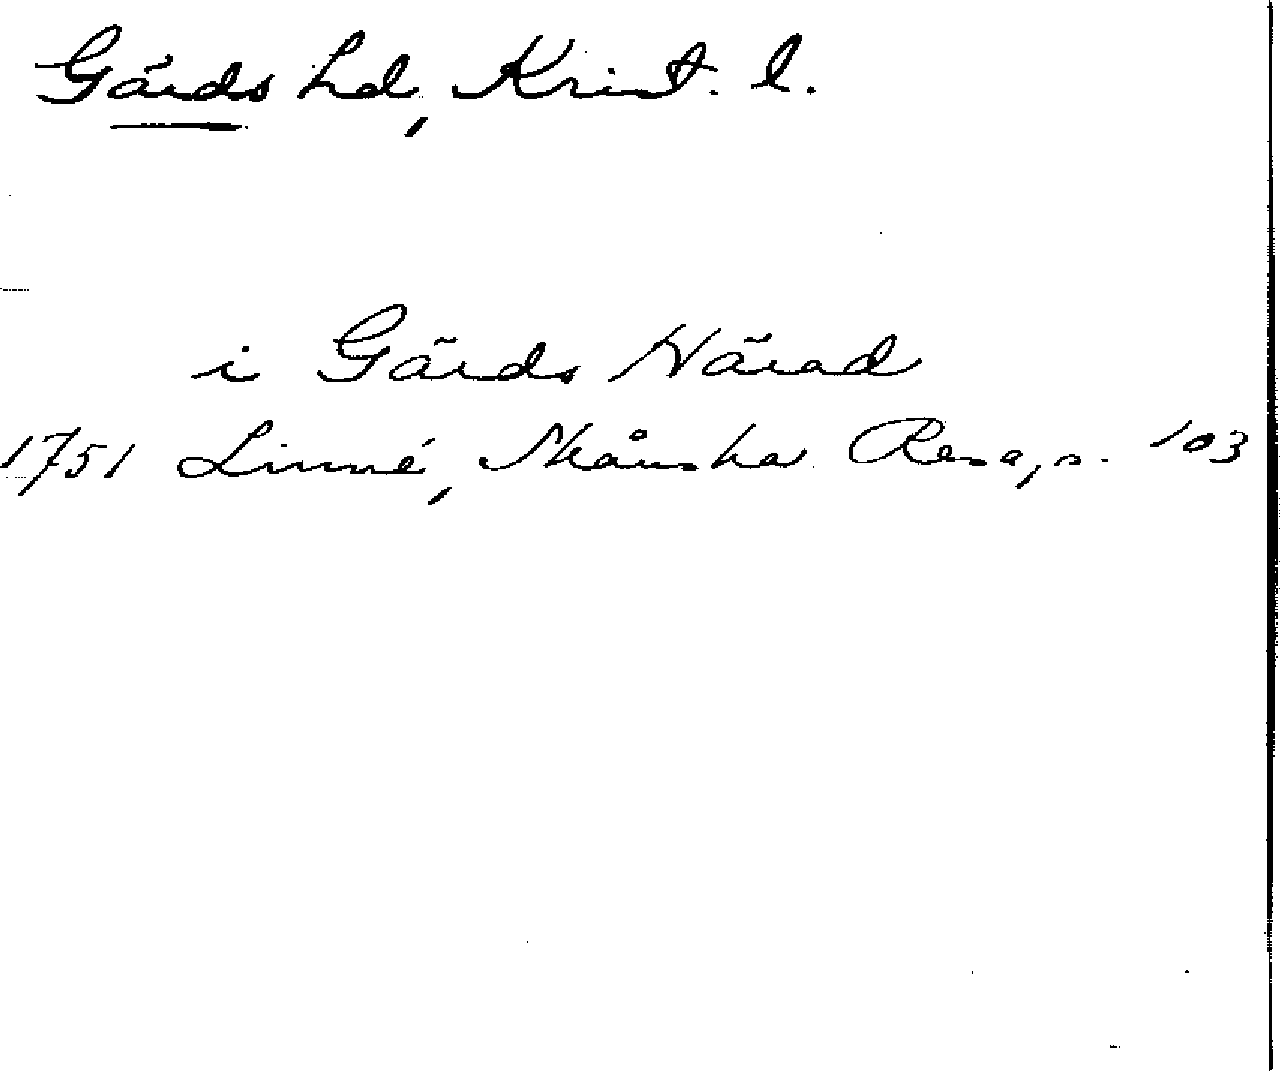 Gärds hd, Krist. l.
i Gärds Härad
1751 Linné, Skånska Resa, s. 103